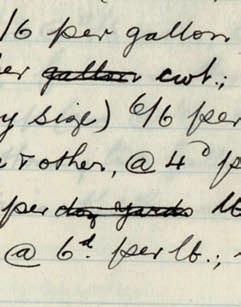 /6 per gallon
er gallon cwt.;
y size) 6/6 per
r & other, @ 4D p
per doz yards lb
@ 6d. per lb.;